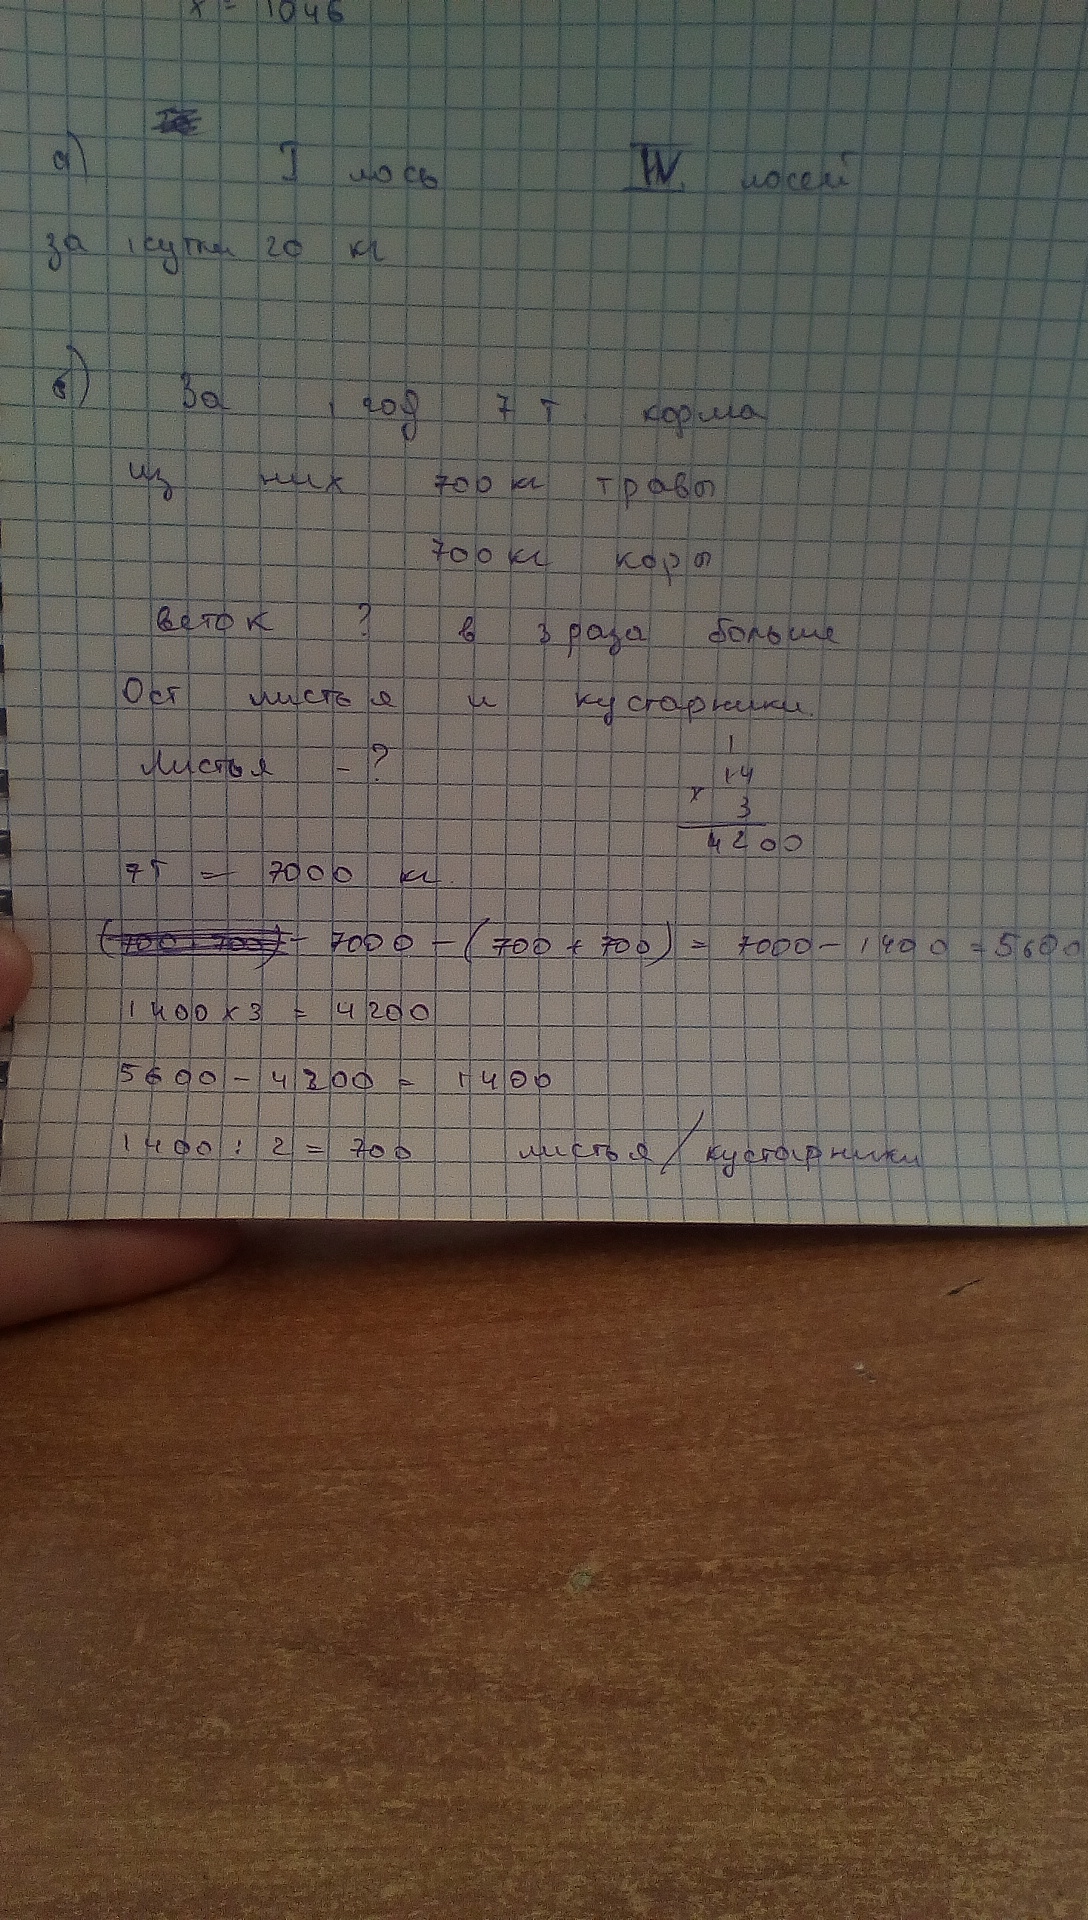 x = 1046
а) I лось IV лосей
за 1 сутки 20 кг
б) За 1 год 7 т корма
из них 700 кг травы
700 кг коры
веток ? в 3 раза больше
Ост листья и кустарники.
Листья - ?
1
14
x 3
4200
7т = 7000 кг.
(700 + 700) - 7000 - (700 + 700) = 7000 - 1400 = 5600
1400 x 3 = 4200
5600 - 4200 = 1400
1400 : 2 = 700 листья / кустарники